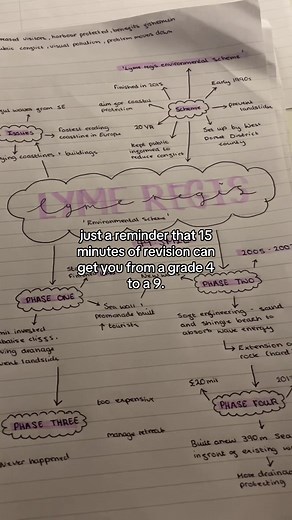 visitors, harbour protected, benefits
conflict, visual pollution, problem moves down
"Lyme regis environmental scheme"
Finished in 2015
Early 1990s
waves from SE
aim for coastal
protection
Scheme
prevent
landslides
Issues
Fastest eroding
coastline in Europe
20 YR
Set up by West
Dorset District
county
coastlines + buildings
Kept public
informed to
reduce conflict
LYME REGIS
lyme regis
'Environmental Scheme'
just a reminder that 15
minutes of revision can
get you from a grade 4
to a 9.
2005 - 200
PHASE ONE
PHASE TWO
Sea wall +
promenade built
↑ tourists
invested
Soft engineering - sand
and shingle beach to
absorb wave energy
Extension of
rock
£20 mil
201
too expensive
PHASE FOUR
PHASE THREE
manage retreat
Built a new 390m sea
infront of existing
Never happened
More drainage
protecting